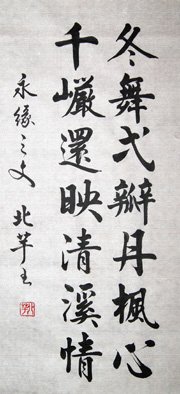 冬舞弌瓣丹楓心
千巗還映清溪情
永緣之文 北芉王